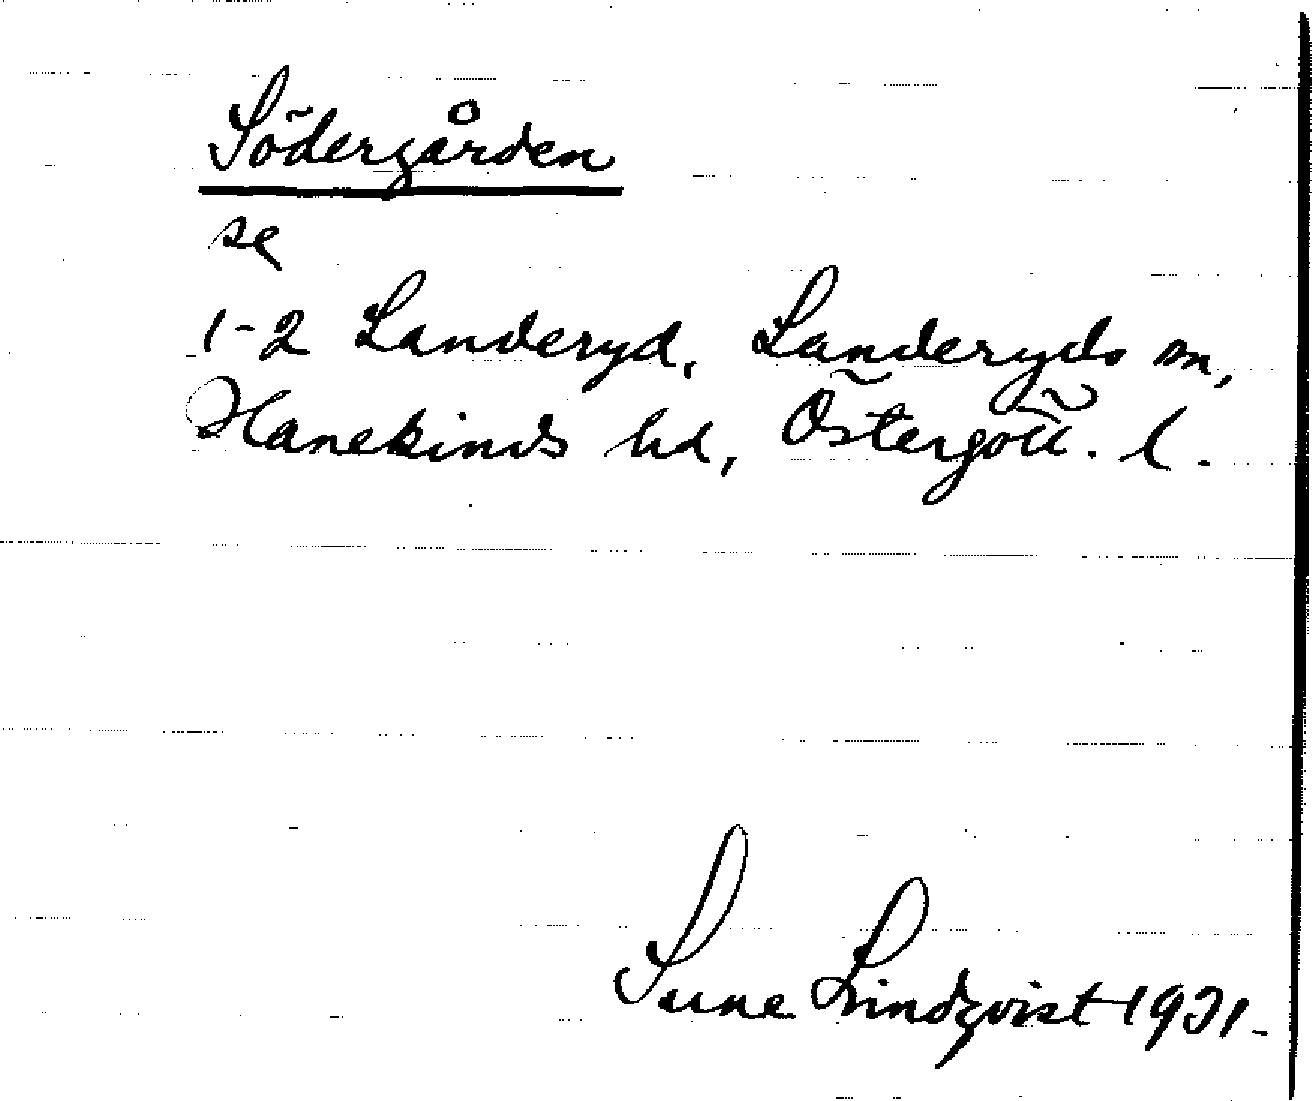 Södergården
se
1-2 Landeryd, Landeryds sn,
Hanekinds hd, Östergötl. l.
Sune Lindqvist 1931.